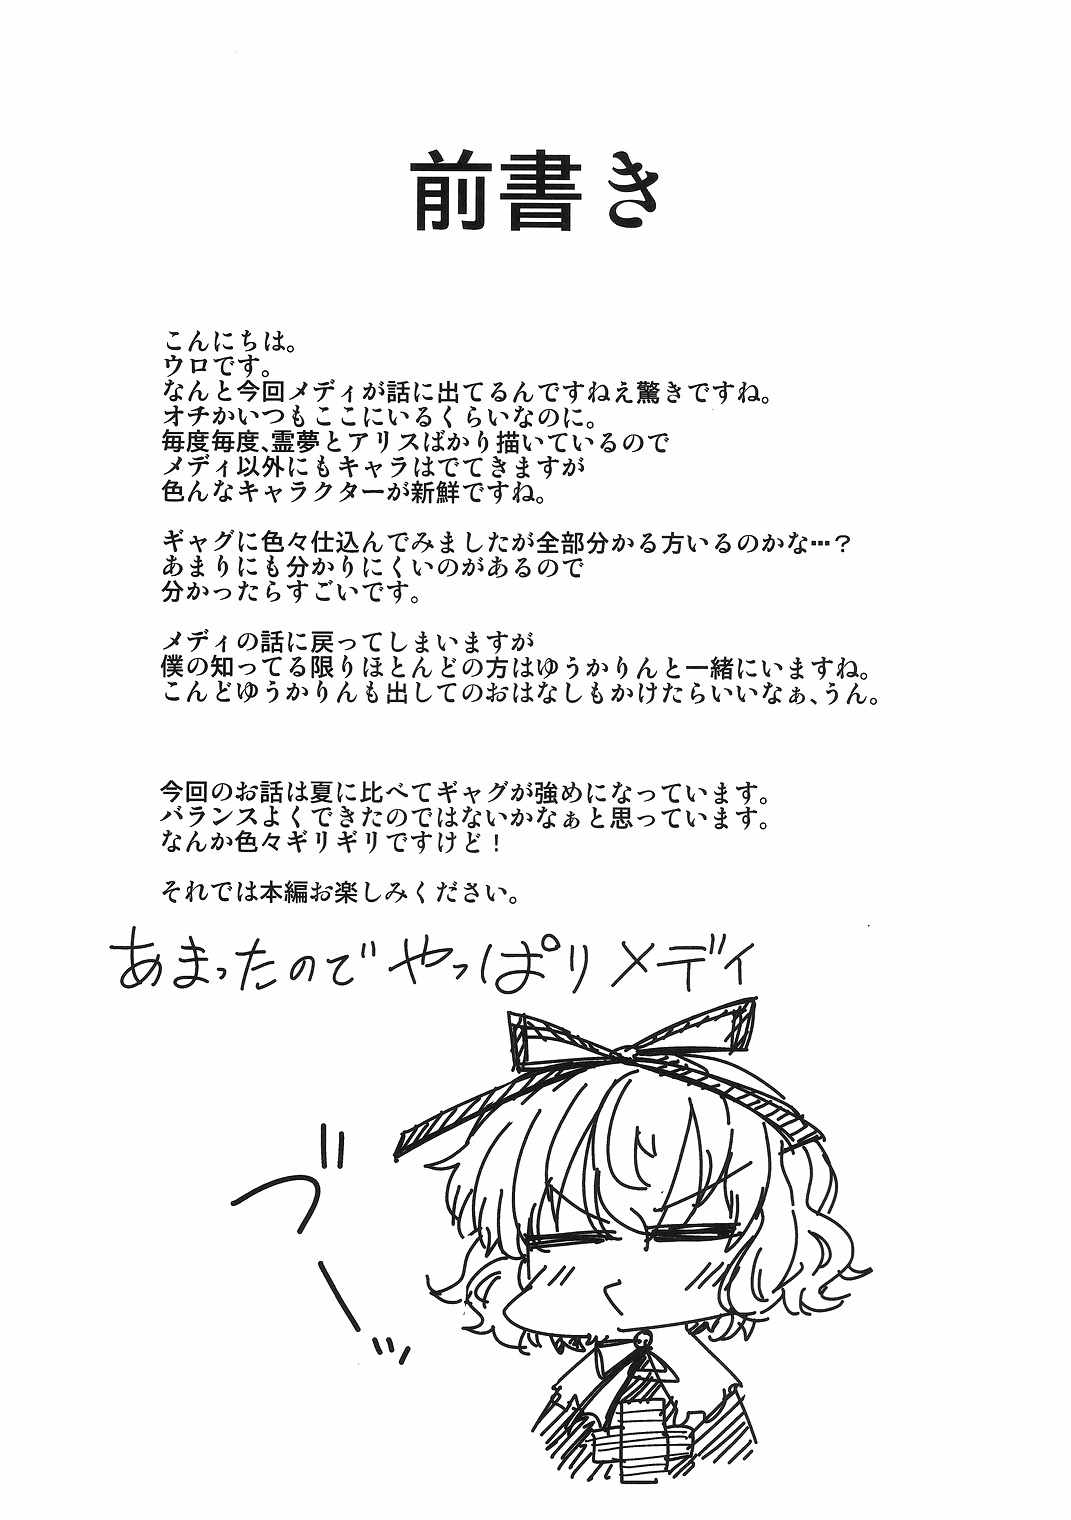 前書き
こんにちは。
ウロです。
なんと今回メディが話に出てるんですねえ驚きですね。
オチかいつもここにいるくらいなのに。
毎度毎度、霊夢とアリスばかり描いているので
メディ以外にもキャラはでてきますが
色んなキャラクターが新鮮ですね。
ギャグに色々仕込んでみましたが全部分かる方いるのかな…？
あまりにも分かりにくいのがあるので
分かったらすごいです。
メディの話に戻ってしまいますが
僕の知ってる限りほとんどの方はゆうかりんと一緒にいますね。
こんどゆうかりんも出してのおはなしもかけたらいいなぁ、うん。
今回のお話は夏に比べてギャグが強めになっています。
バランスよくできたのではないかなぁと思っています。
なんか色々ギリギリですけど！
それでは本編お楽しみください。
あまったのでやっぱりメディ
づ